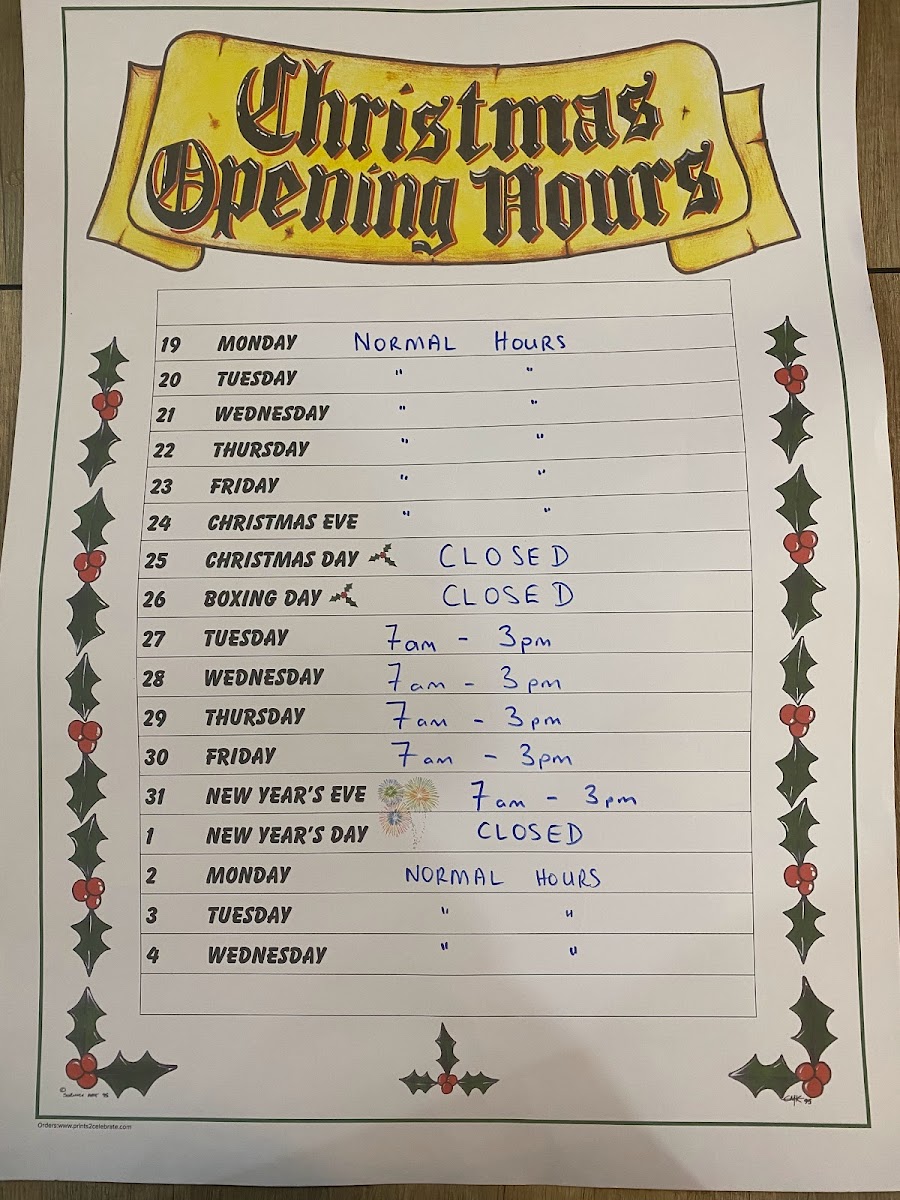 Christmas
Opening Hours
19 MONDAY NORMAL HOURS
20 TUESDAY " "
21 WEDNESDAY " "
22 THURSDAY " "
23 FRIDAY " "
24 CHRISTMAS EVE " "
25 CHRISTMAS DAY CLOSED
26 BOXING DAY CLOSED
27 TUESDAY 7am - 3pm
28 WEDNESDAY 7am - 3pm
29 THURSDAY 7am - 3pm
30 FRIDAY 7am - 3pm
31 NEW YEAR'S EVE 7am - 3pm
1 NEW YEAR'S DAY CLOSED
2 MONDAY NORMAL HOURS
3 TUESDAY " "
4 WEDNESDAY " "
Orders:www.prints2celebrate.com